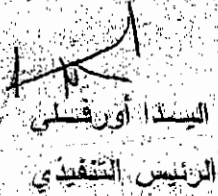 اليسدا أورفسلي
الرئيس التنفيذي